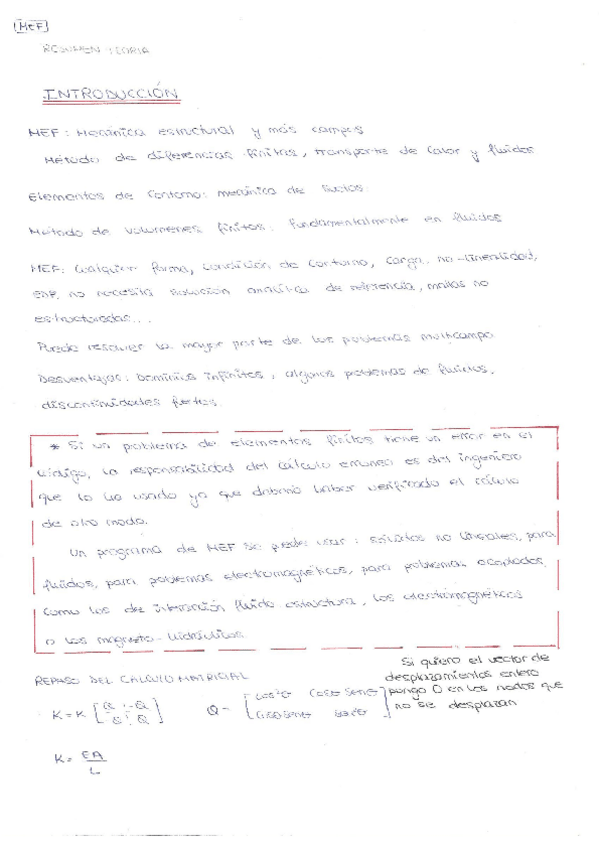 MEF
RESUMEN TEORIA
INTRODUCCIÓN
MEF: Mecánica estructural y más campos
Método de diferencias finitas, transporte de calor y fluidos
Elementos de Contorno: mecánica de
Método de volumenes finitos: fundamentalmente en fluidos
MEF: Cualquier forma, condición de contorno, carga, no-linealidad,
no necesita solución analítica de referencia, mallas no
estructuradas...
Puede resolver la mayor parte de los problemas multicampo
Desventajas: Dominios infinitos, algunos problemas de fluidos,
discontinuidades fuertes.
* Si un problema de elementos finitos tiene un error en el
código, la responsabilidad del cálculo erroneo es del ingeniero
que lo ha usado ya que debería haber verificado el cálculo
de otro modo.
Un programa de MEF se puede usar: sólidos no lineales, para
fluidos, para problemas electromagnéticos, para problemas acoplados,
como los de interacción fluido estructura, los electromagnéticos
o los magneto-hidráulicos.
REPASO DEL CALCULO MATRICIAL
Si quiero el vector de
desplazamientos entero
pongo 0 en los nodos que
no se desplazan
K = K [Q -Q
-Q Q]
Q = [cos²θ cosθ senθ
cosθ senθ sen²θ]
K = EA
L